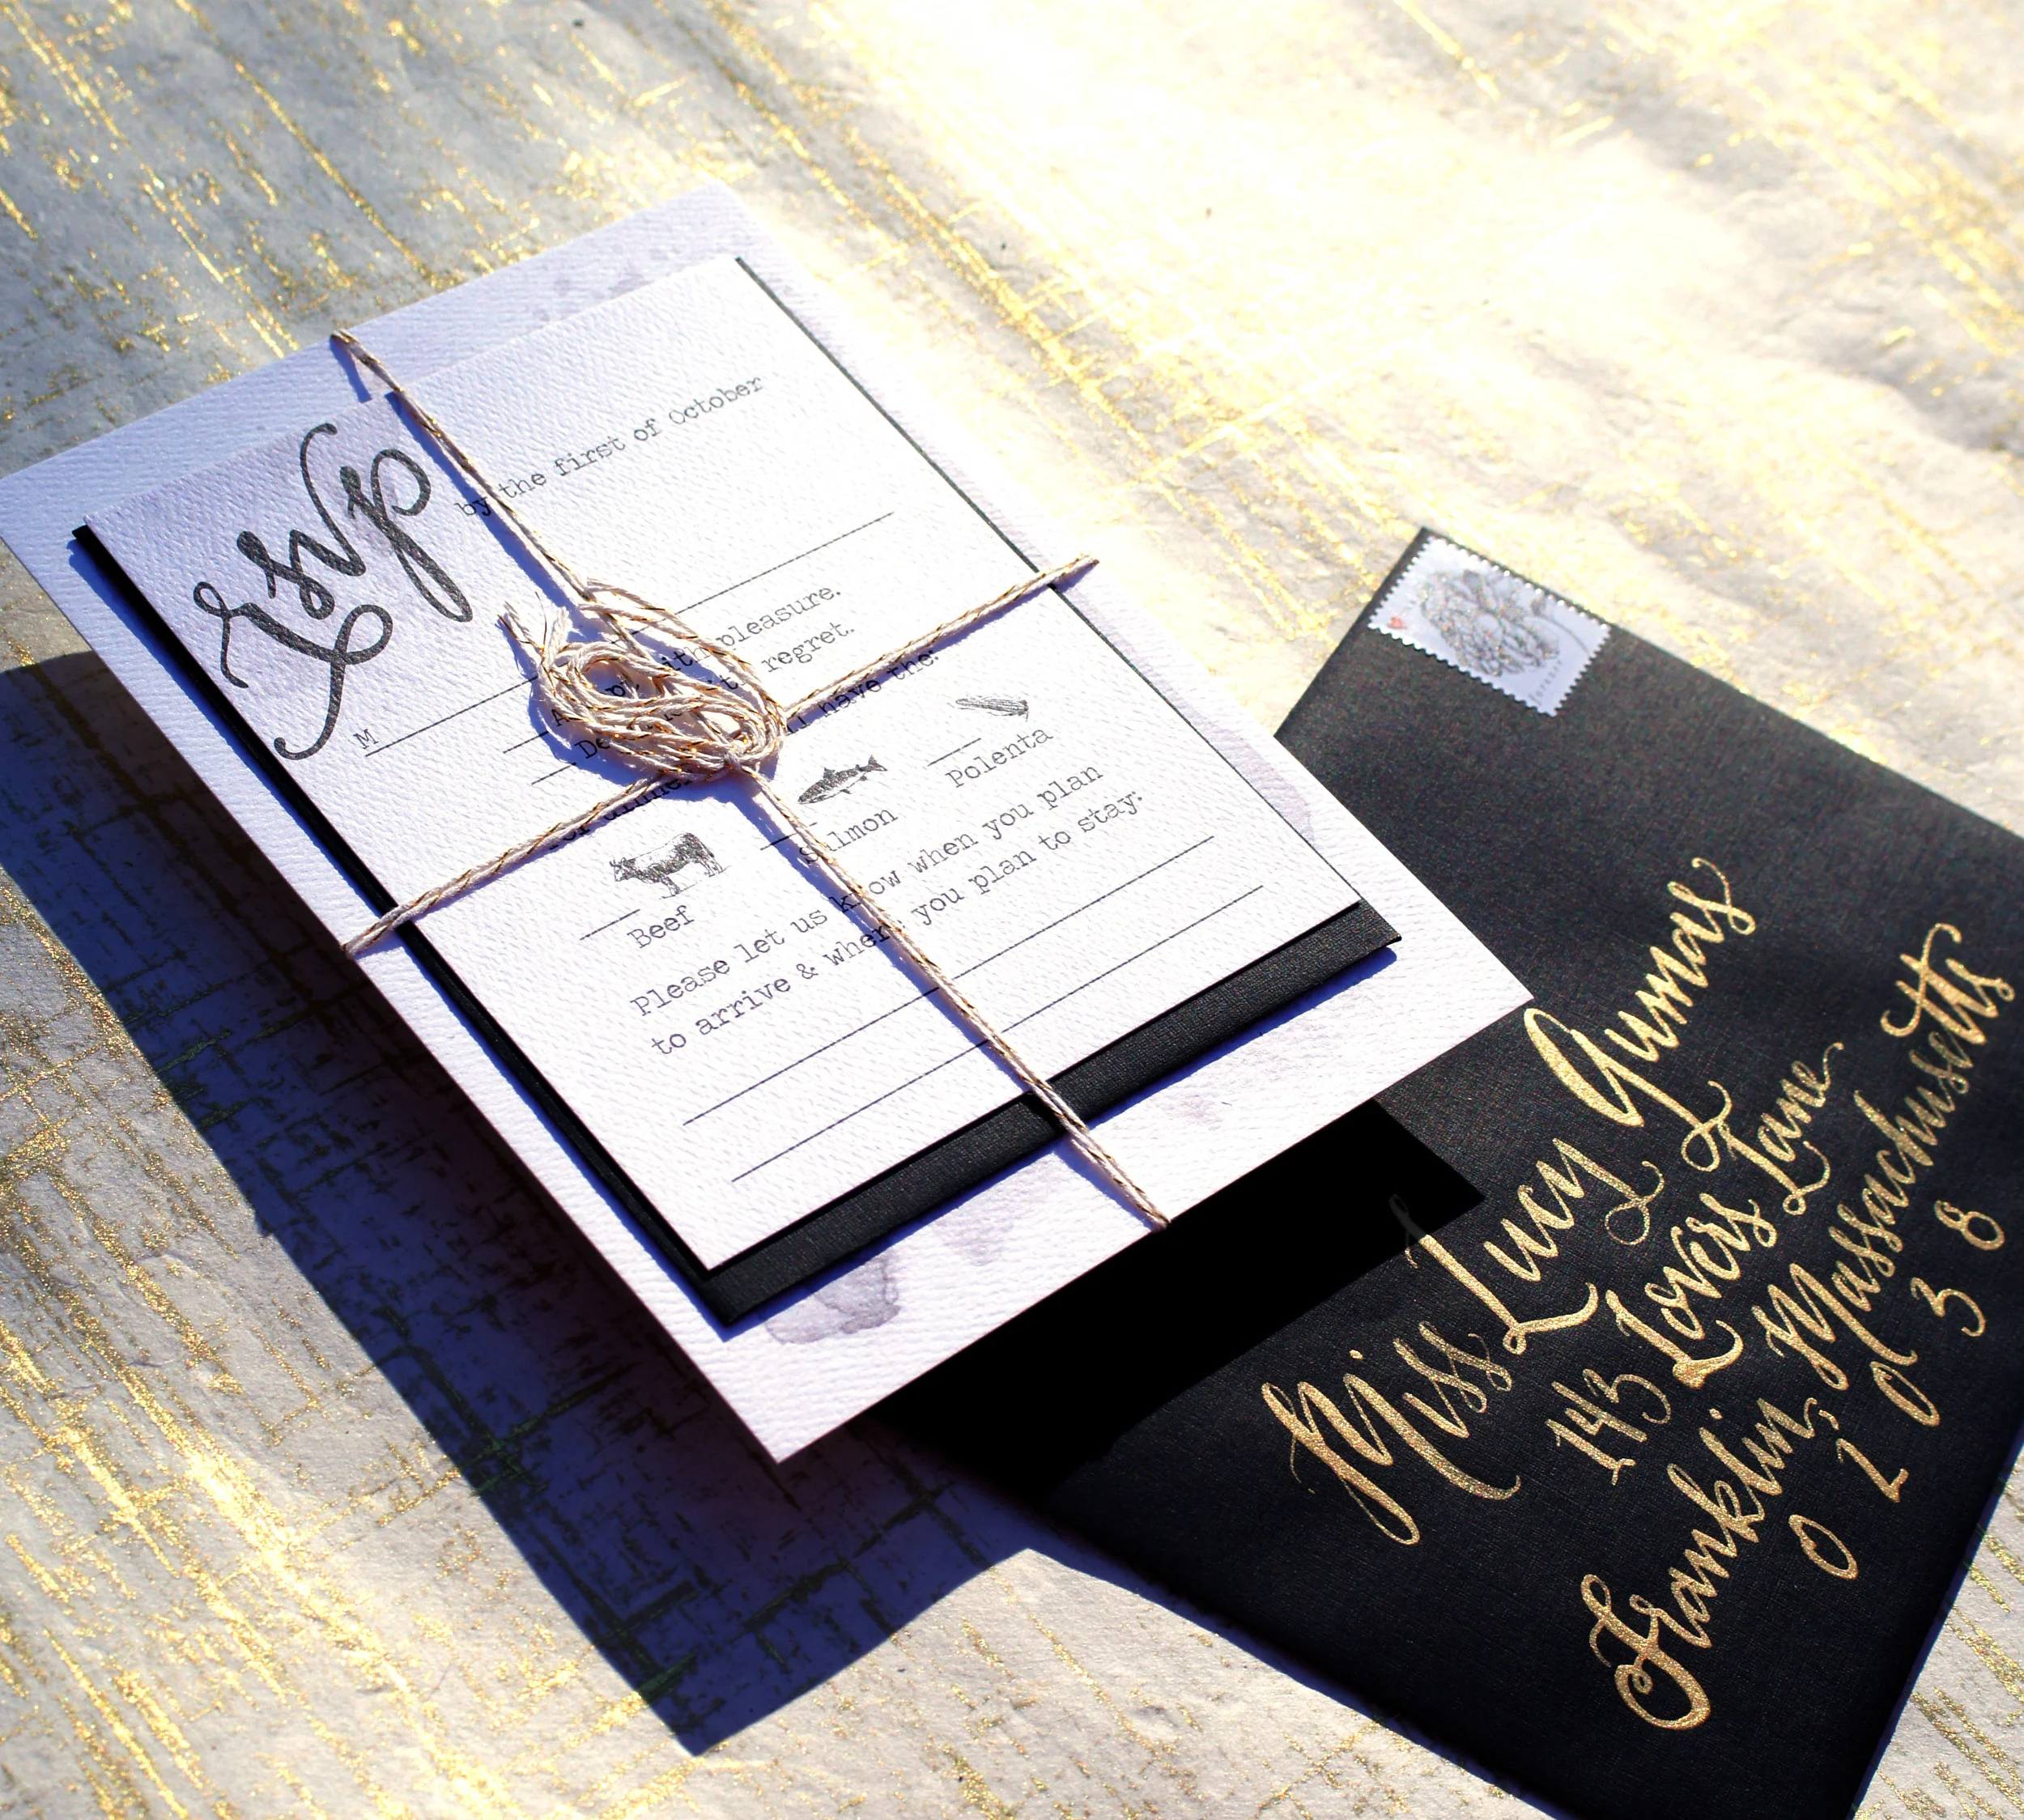 rsvp
by the first of October
M
pleasure.
regret.
have the:
Beef
Salmon
Polenta
Please let us know when you plan
to arrive & where you plan to stay:
Miss Lucy Gumas
143 Lovers Lane
Franklin, Massachusetts
0 2 0 3 8